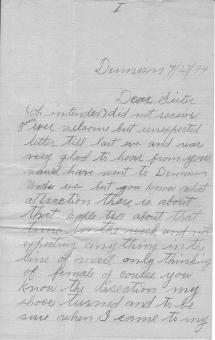 I
Dennison 7/27/94
Dear Sister
(I intended) did not receive
your ever welcome but unexpected
letter till last eve and was
very glad to hear from you
would have went to Dennison
Weds eve but you know what
attraction there is about
that table too about that
time for the week and not
expecting anything in the
line of mail only thinking
of female of course you
know the direction my
shoes turned and to be
sure when I came to my